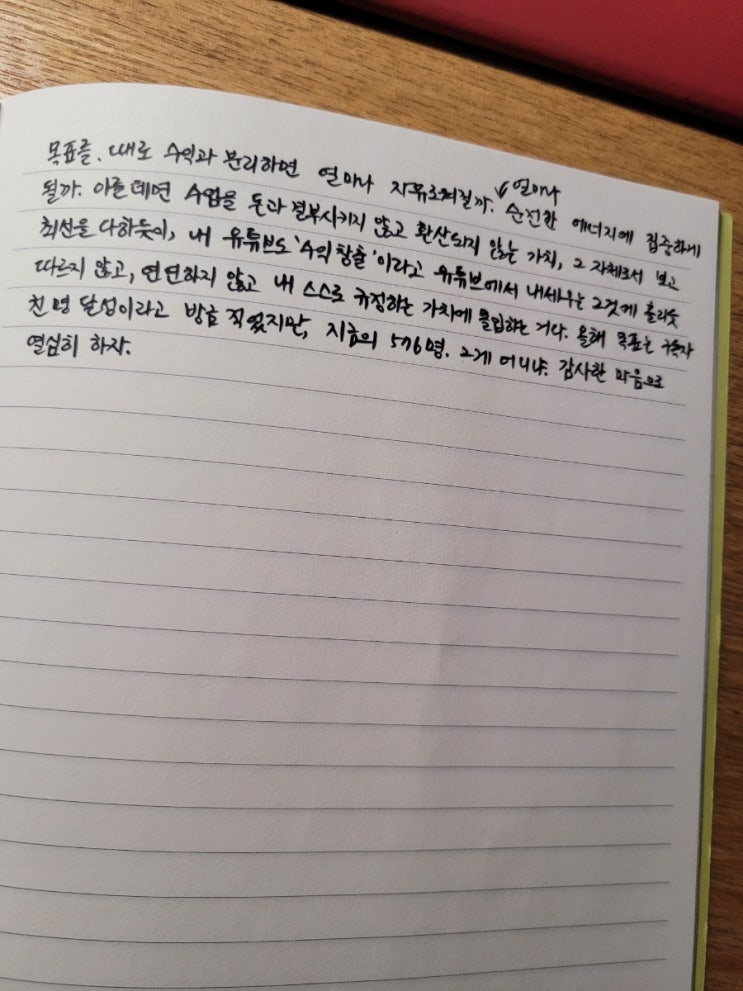 목표를. 때로 수익과 분리하면 얼마나 자유로워질까. 얼마나 순전한 에너지에 집중하게
될까. 이를테면 수업을 돈과 결부시키지 않고 환산되지 않는 가치, 그 자체로서 보고
최선을 다하듯이, 내 유튜브도 '수익 창출'이라고 유튜브에서 내세우는 그것에 홀리듯
따르지 않고, 연연하지 않고 내 스스로 규정하는 가치에 몰입하는 거다. 올해 목표는 구독자
천 명 달성이라고 방금 적었지만, 지금의 576명. 그게 어디냐. 감사한 마음으로
열심히 하자.